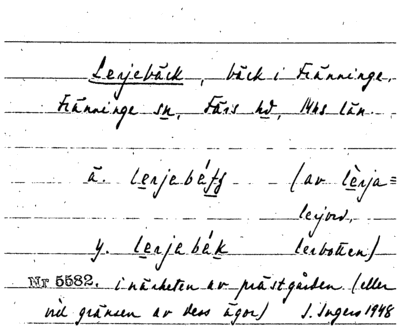 Lerjebäck, bäck i Fränninge,
Fränninge sn, Färs hd, Mhs län.
ä. lerjebé (av lèrja =
lerjord,
y. lerjebék lerbotten)
Nr 5582. i närheten av prästgården (eller
vid gränsen av dess ägor) I. Ingers 1948